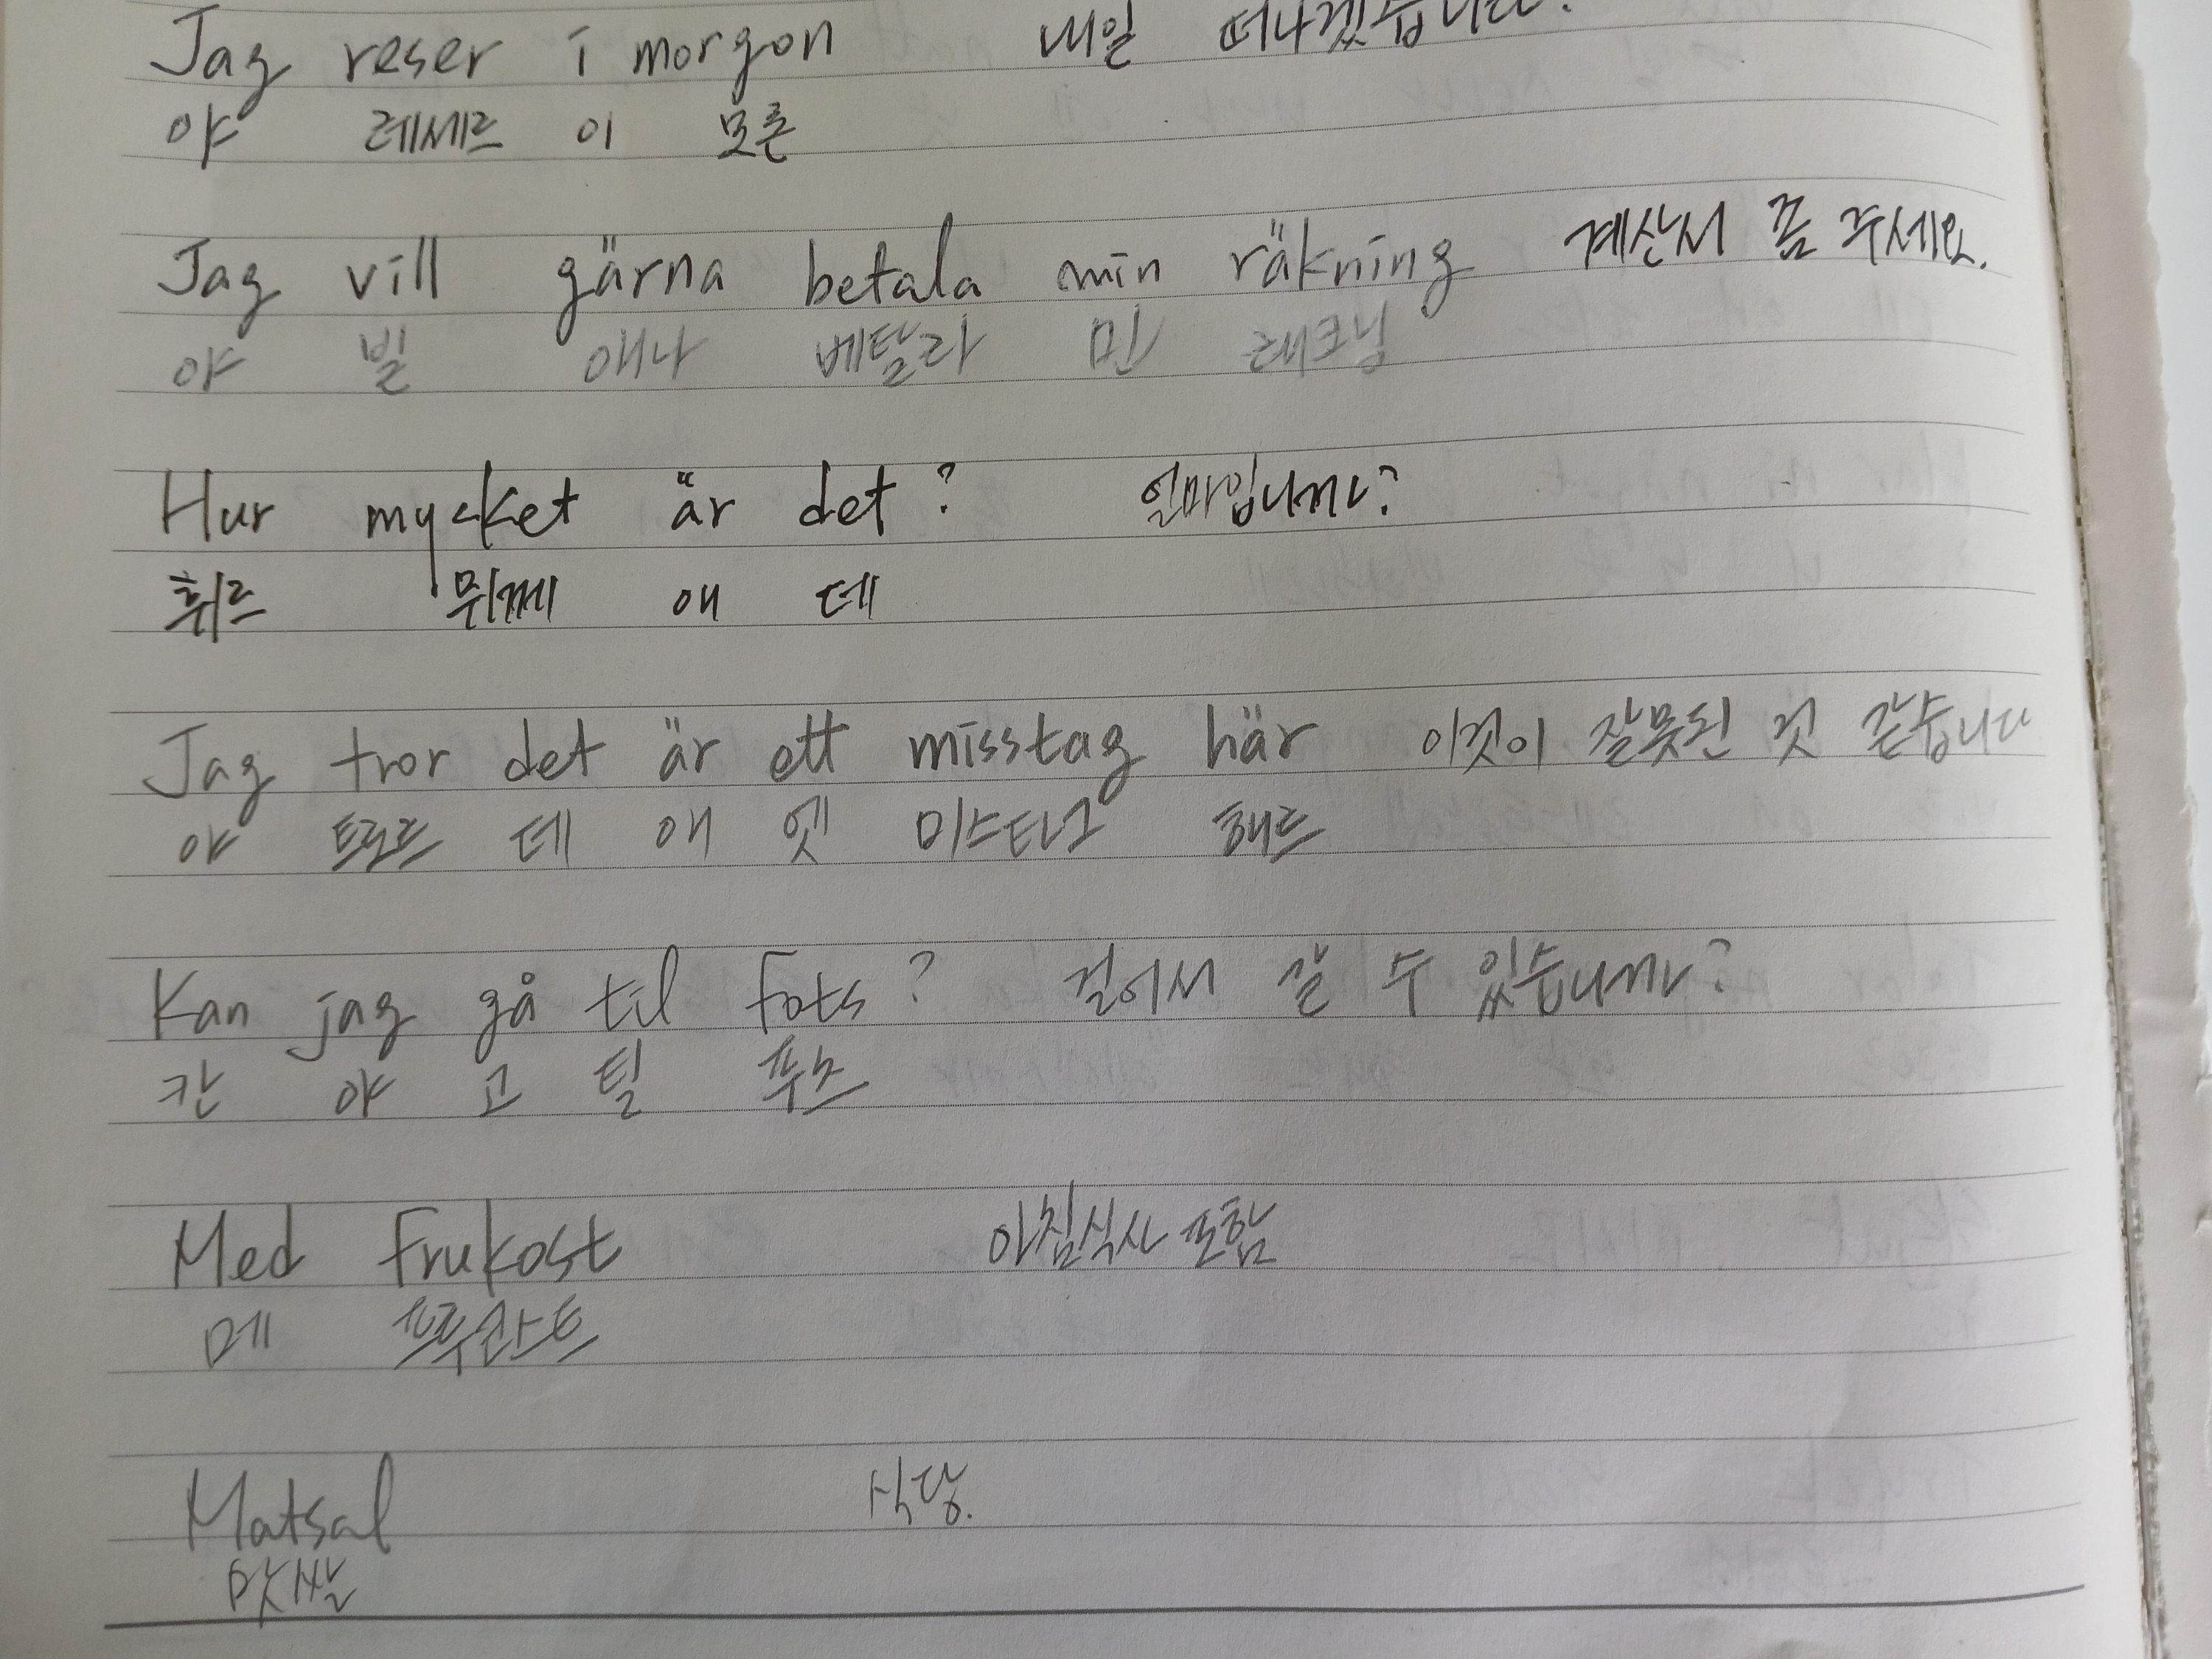 Jag reser i morgon 내일 떠나겠습니다.
야 레세르 이 모른
Jag vill gärna betala min räkning 계산서 좀 주세요.
야 빌 애나 베탈라 민 래크닝
Hur mycket är det? 얼마입니까?
휘르 뮈께 애 데
Jag tror det är ett misstag här 이것이 잘못된 것 같습니다
야 트로르 데 애 엣 미스타그 해르
Kan jag gå til fots? 걸어서 갈 수 있습니까?
칸 야 고 틸 풋스
Med frukost 아침식사 포함
메 프루콰스트
Matsal 식당.
맛쌀